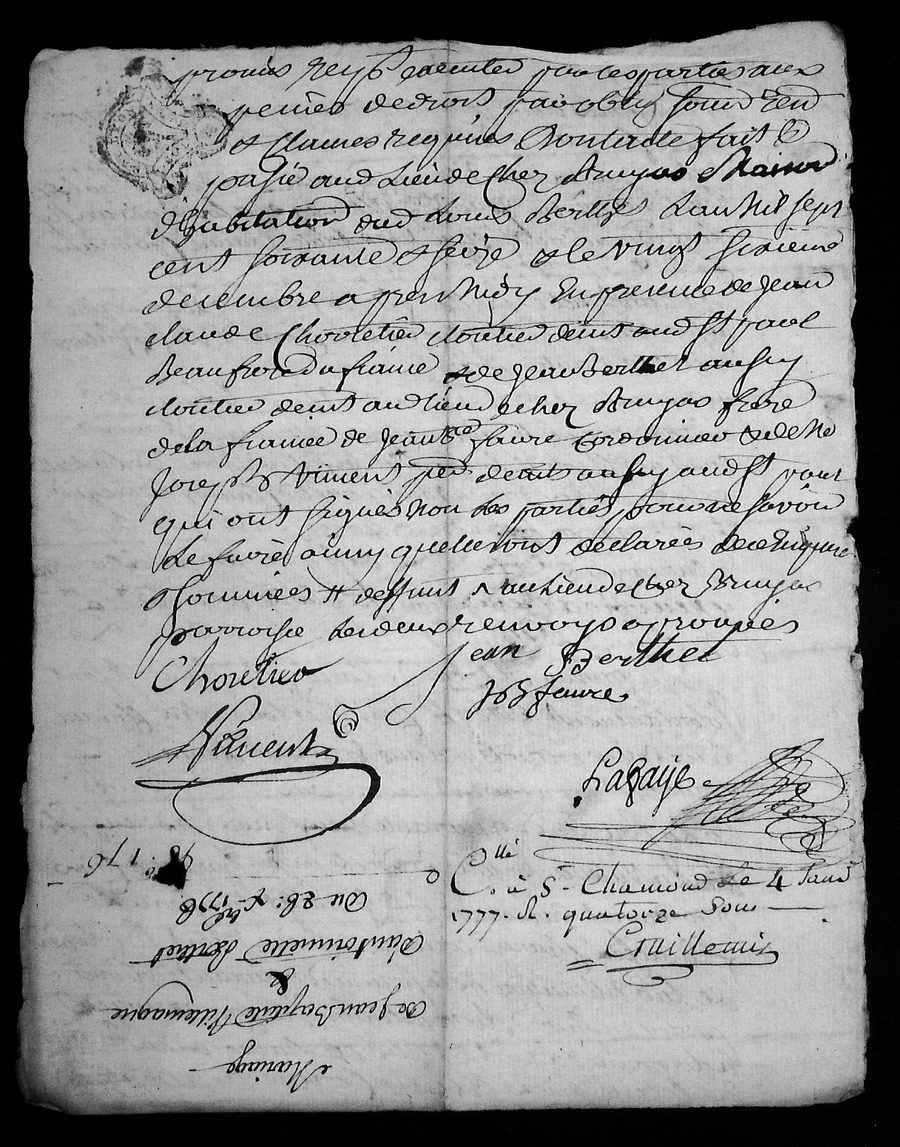 promis resp executer par les parties aux
peines de droit par oblig soum ren
& clauses requises Dont acte fait &
passé aud Lieu de Chez Bruyas Maison
d'habitation dud Louis Berthet L'an Mil sept
cent soixante & seize & le vingt sixieme
decembre apres Midy En presence de Jean
claude Choretier cloutier demt aud St paul
Beaufrere du fiancé & de Jean Berthet aussy
cloutier demt au lieu de chez Bruyas frere
de la fiancée de Jean faure Cordonnier & de Me
Joseph Viment demt aussy aud St paul
qui ont signés non les parties pour ne savoir
Le faire ainsy quelles ont declarées de ce Enquises
& sommées # deffunt au lieu de chez Bruyas
parroisse Les deux renvoys approuvés
Choretier Jean Berthet
Faure
Viment
Lafaye
C.llé à St Chamond Le 4 Janv
1777. R. quatorze sous
Mariage
de Jean Baptiste Villemagne
&
D'antoinnette Berthet
Du 26: Xbre 1776